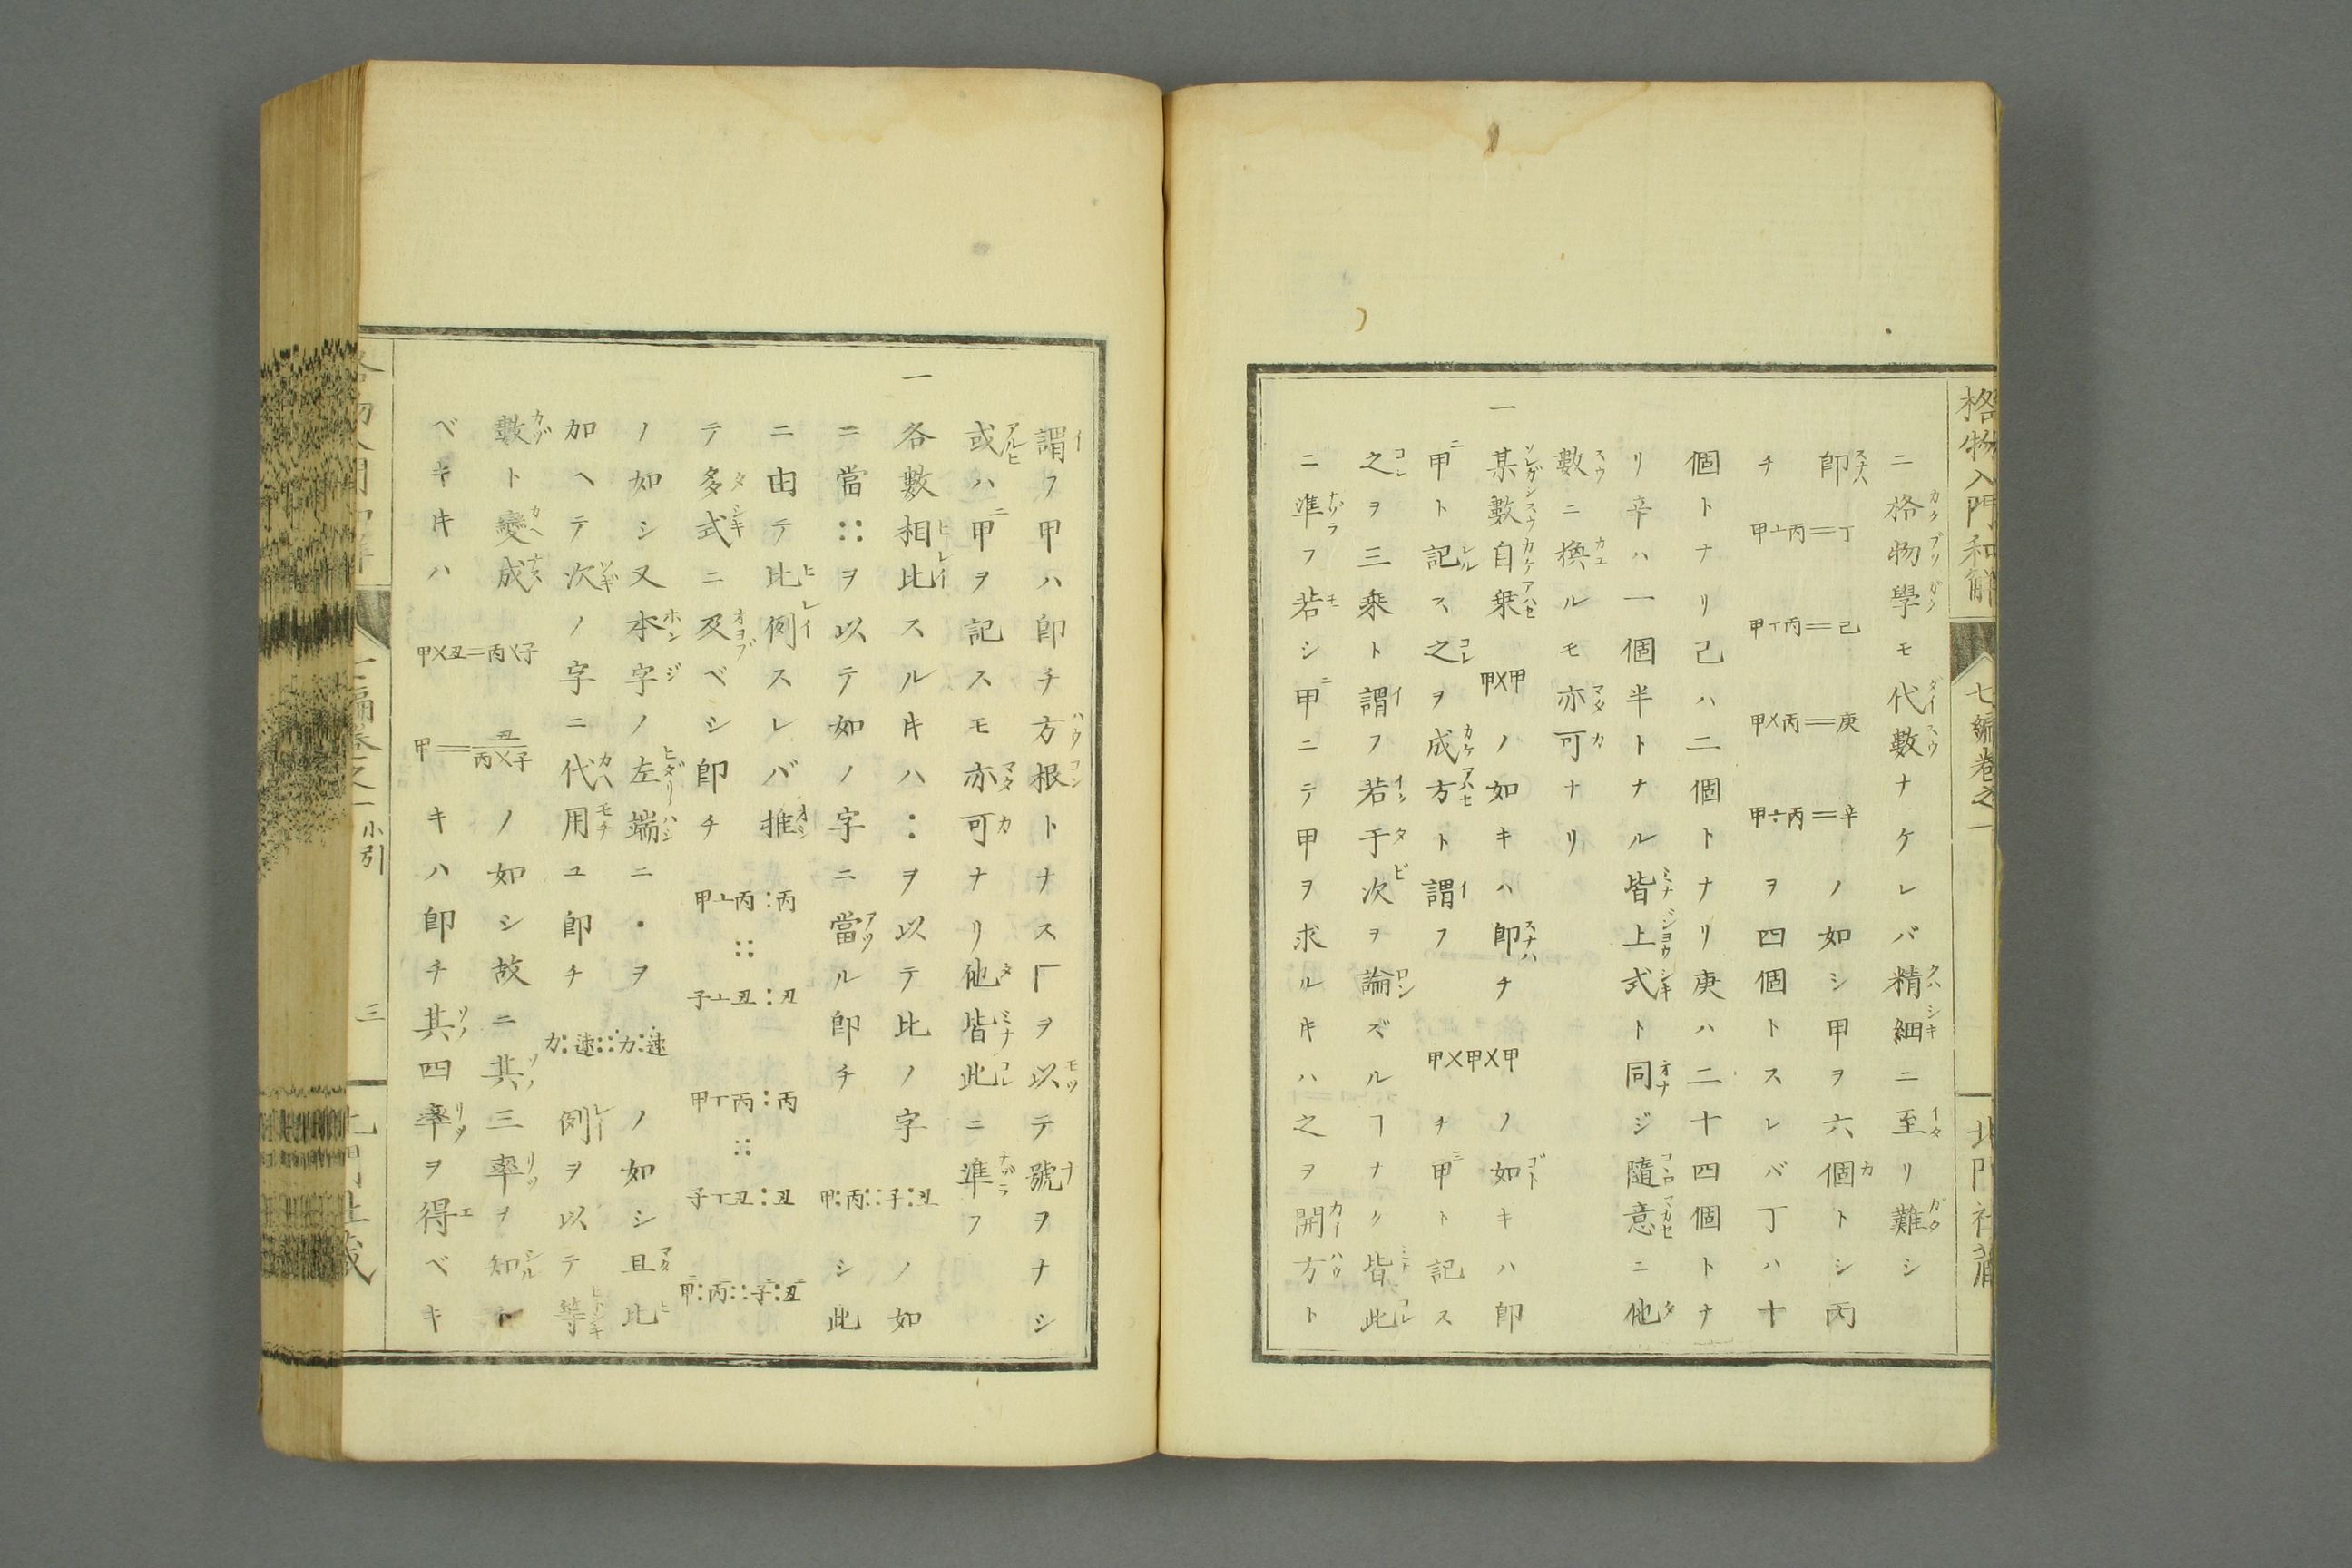 格物入門和解
七編卷之一
北門社藏
ニ格物學モ代數ナケレバ精細ニ至リ難シ
卽 甲⊥丙＝丁 甲丅丙＝己 甲×丙＝庚 甲÷丙＝辛 ノ如シ甲ヲ六個トシ丙
チ ヲ四個トスレバ丁ハ十
個トナリ己ハ二個トナリ庚ハ二十四個トナ
リ辛ハ一個半トナル皆上式ト同ジ隨意ニ他
數ニ換ルモ亦可ナリ
一某數自乗 甲×甲 ノ如キハ卽チ 甲×甲×甲 ノ如キハ卽
甲二ト記ス之ヲ成方ト謂フ チ甲三ト記ス
之ヲ三乗ト謂フ若于次ヲ論ズルヿナク皆此
ニ準フ若シ甲二ニテ甲ヲ求ルキハ之ヲ開方ト
謂フ甲ハ卽チ方根トナス厂ヲ以テ號ヲナシ
或ハ二甲ヲ記スモ亦可ナリ他皆此ニ準フ
一各數相比スルキハ：ヲ以テ比ノ字 甲：丙∷子：丑 ノ如
ニ當∷ヲ以テ如ノ字ニ當ル卽チ シ此
ニ由テ比例スレバ推 甲⊥丙：丙∷子⊥丑：丑 甲丅丙：丙∷子丅丑：丑 甲二：丙二∷子二：丑二
テ多式ニ及ベシ卽チ
ノ如シ又本字ノ左端ニ・ヲ 力：速∷力：速 ノ如シ且比
加ヘテ次ノ字ニ代用ユ卽チ 例ヲ以テ等
數ト變成 甲×丑＝丙×子 甲＝丑／丙×子 ノ如シ故ニ其三率ヲ知ト
ベキキハ キハ卽チ其四率ヲ得ベキ
小引
三